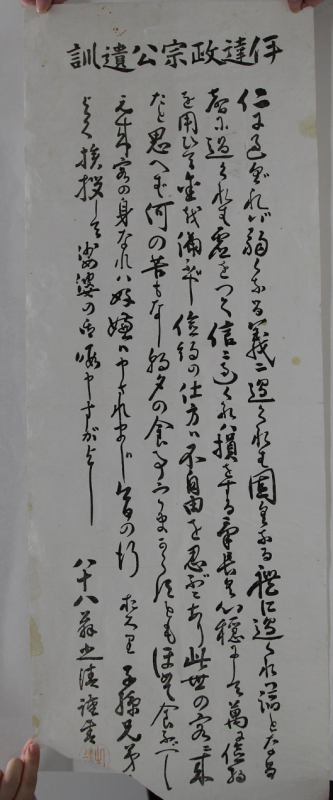 伊達政宗公遺訓
仁に過ぐれば弱くなる義に過ぐれば固くなる禮に過ぐれば諂となる
智に過ぐれば虚をつく信に過ぐれば損をする氣長く心穏にして萬に倹約
を用ひて金を備ふべし倹約の仕方は不自由を忍ぶにあり此世の客に来
たと思へば何の苦もなし朝夕の食事うまからずともほめて食ふべし
元来客の身なれば好嫌は申されまじ今日の行をおくり子孫兄弟に
よく挨拶して娑婆の御暇申すがよし
八十八翁 謹書